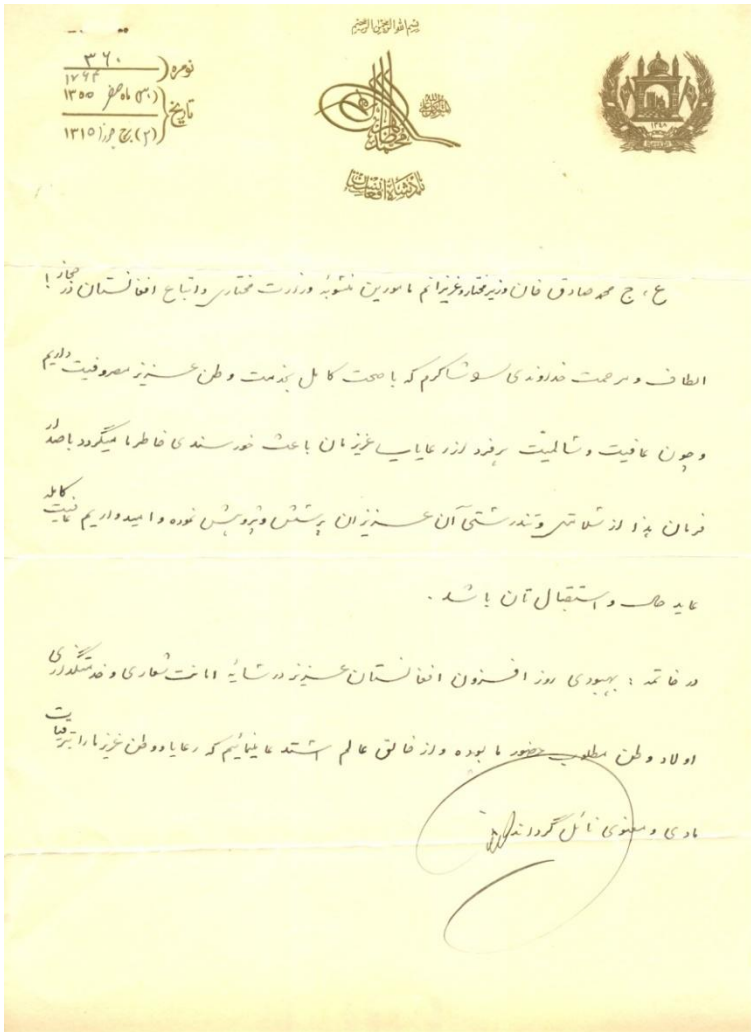 بسم الله الرحمن الرحیم
نومره ( ۳۶۰
۱۷۶۴
تاریخ { (۳۰) ماه صفر ۱۳۵۵
(۲) برج جوزا ۱۳۱۵
محمد ظاهر
پادشاه افغانستان
۱۳۴۸
ع، ج محمد صادق خان وزیر مختار و عزیزانم مامورین منسوبهٔ وزارت مختاری و اتباع افغانستان در حجاز!
الطاف و مرحمت خداوندی را شاکرم که با صحت کامل بخدمت وطن عزیز مصروفیت داریم
و چون عافیت و سالمیت هر فرد از رعایای عزیز مان باعث خورسندی خاطر ما میگردد باصدار
فرمان هذا از سلامتی و تندرستی آن عزیزان پرسش و پژوهش نموده و امیدواریم عافیت کامله
عاید حال و استقبال تان باشد.
در خاتمه: بهبودی روز افزون افغانستان عزیز در سایهٔ امانت شعاری و خدمتگذاری
اولاد وطن مطلوب حضور ما بوده و از خالق عالم استدعا مینمائیم که رعایا و وطن عزیز ما را بترقیات
مادی و معنوی نائل گرداند